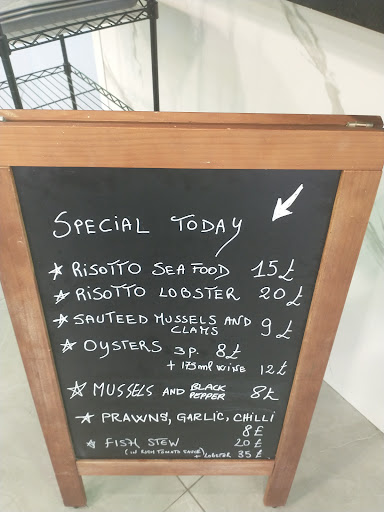 SPECIAL TODAY
RISOTTO SEA FOOD 15£
RISOTTO LOBSTER 20£
SAUTEED MUSSELS AND
CLAMS 9£
OYSTERS 3P. 8£
+ 175ml WINE 12£
MUSSELS AND BLACK PEPPER 8£
PRAWNS, GARLIC, CHILLI
8£
FISH STEW 20£
(IN RUSH TOMATO SAUCE) + LOBSTER 35£